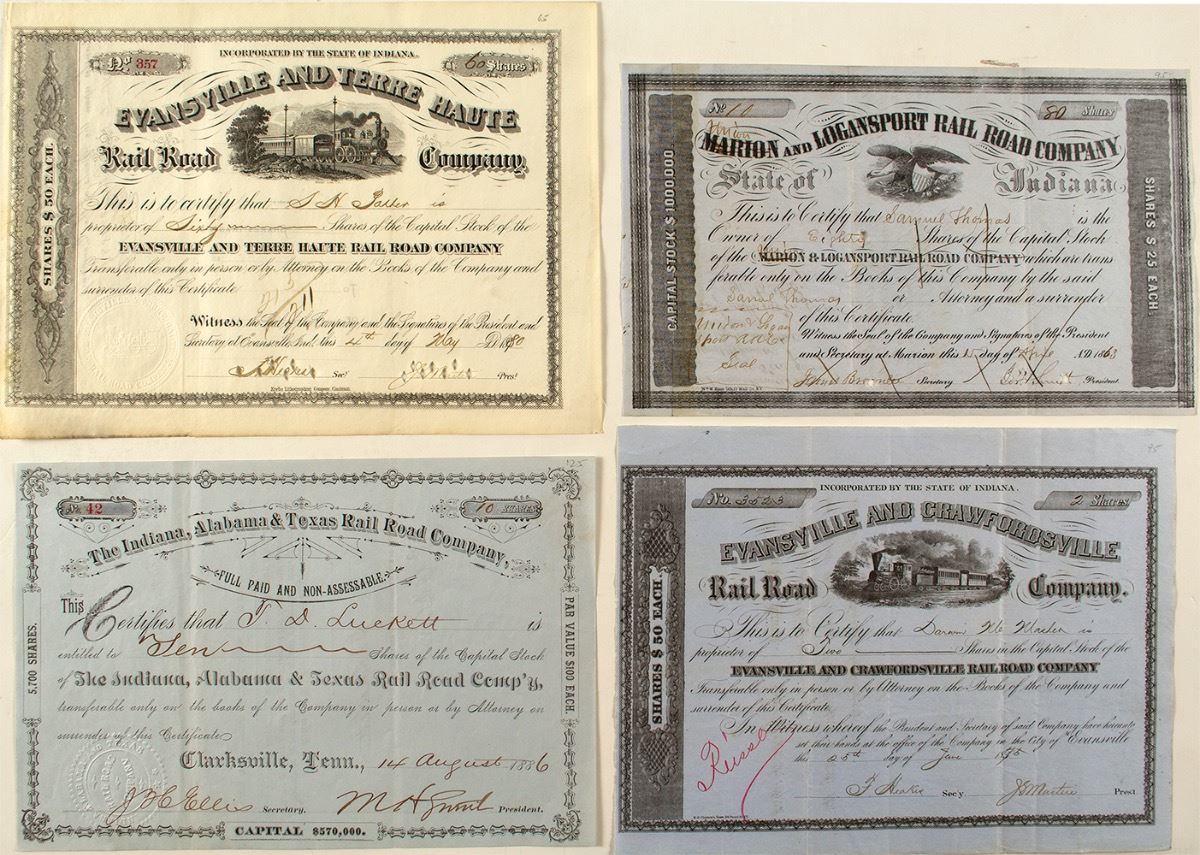 65
INCORPORATED BY THE STATE OF INDIANA.
No 357
60 Shares
EVANSVILLE AND TERRE HAUTE
Rail Road Company.
SHARES $ 50 EACH.
This is to certify that S H is
proprietor of Sixty Shares of the Capital Stock of the
EVANSVILLE AND TERRE HAUTE RAIL ROAD COMPANY
Transferable only in person or by Attorney on the Books of the Company and
surrender of this Certificate
Witness the Seal of the Company and the Signatures of the President and
Secretary at Evansville Ind. this 4th day of May AD 1880
Secy Prest
95
No
80 Shares
Union
MARION AND LOGANSPORT RAIL ROAD COMPANY
State of Indiana
CAPITAL STOCK $ 1000000
SHARES $ 25 EACH.
This is to Certify that Samuel Thomas is the
Owner of Eighty Shares of the Capital Stock
Union
of the MARION & LOGANSPORT RAIL ROAD COMPANY which are trans
ferable only on the Books of this Company by the said
Samuel Thomas or Attorney and a surrender
of this Certificate.
Witness the Seal of the Company and Signatures of the President
and Secretary at Marion this day of AD 1863
Union & Logan
port
Seal
Secretary President
125
No. 42
10 SHARES
The Indiana, Alabama & Texas Rail Road Company,
FULL PAID AND NON-ASSESSABLE.
5,700 SHARES.
PAR VALUE $100 EACH.
This Certifies that T. D. Luckett is
entitled to Ten Shares of the Capital Stock
of The Indiana, Alabama & Texas Rail Road Comp'y,
transferable only on the books of the Company in person or by Attorney on
surrender of this Certificate
Clarksville, Tenn., 14 August 1886
Secretary. President.
CAPITAL $570,000.
95
INCORPORATED BY THE STATE OF INDIANA.
No. 3523
2 Shares
EVANSVILLE AND CRAWFORDSVILLE
Rail Road Company.
SHARES $ 50 EACH.
This is to Certify that is
proprietor of Two Shares in the Capital Stock of the
EVANSVILLE AND CRAWFORDSVILLE RAIL ROAD COMPANY
Transferable only in person or by Attorney on the Books of the Company and
surrender of this Certificate.
In Witness whereof the President and Secretary of said Company have hereunto
set their hands at the office of the Company in the City of Evansville
this 25th day of June
Sec'y. Prest